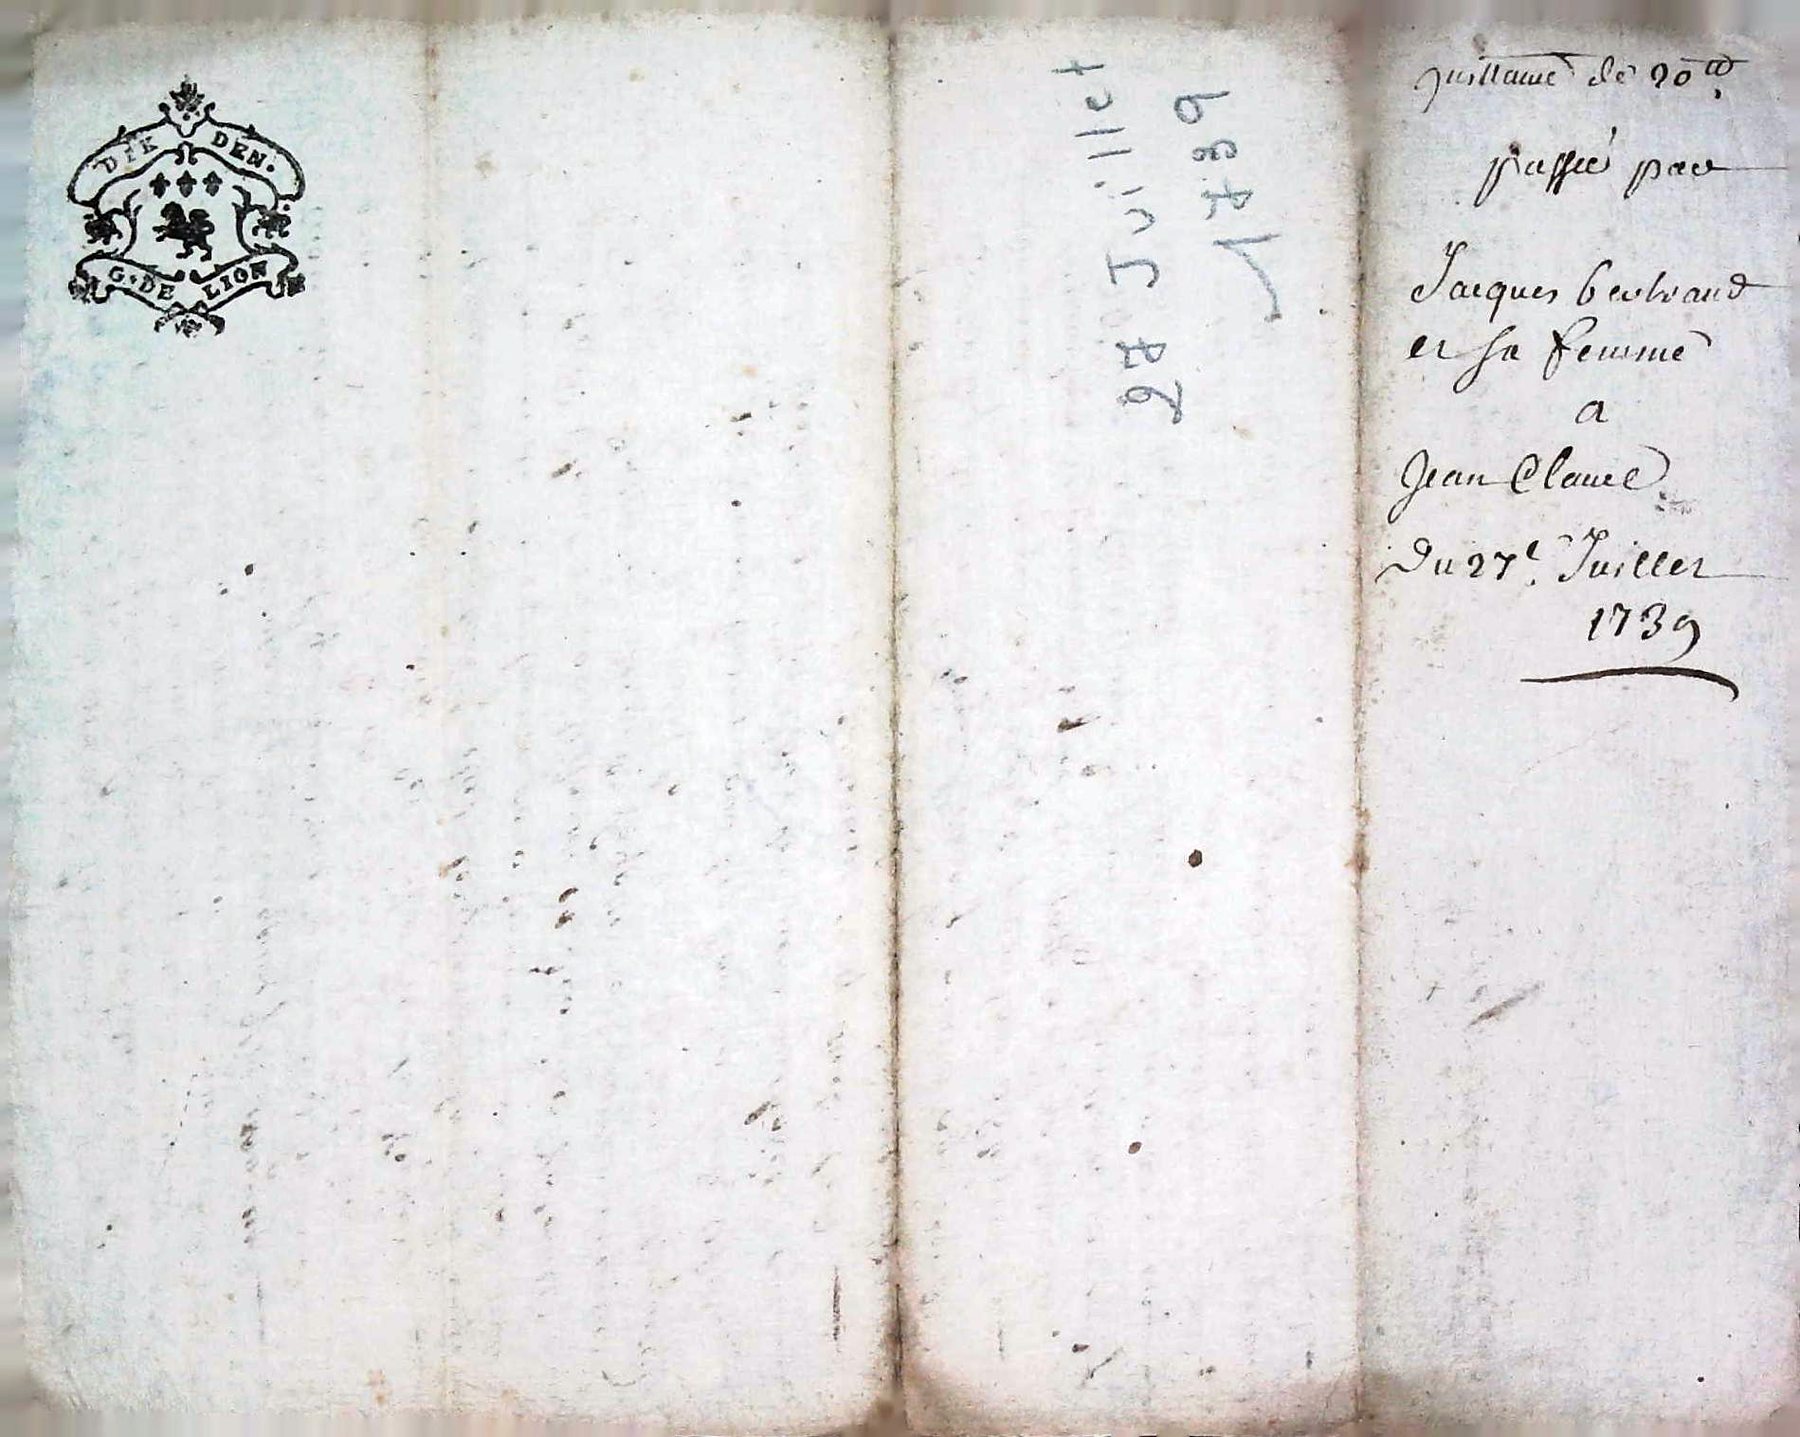 DIX DEN.
G. DE LION
27 Juillet
1739
quittance de 90ᵗᵗ
passée par
Jacques bertrand
et sa femme
a
Jean Claude
Du 27ᵉ. Juillet
1739